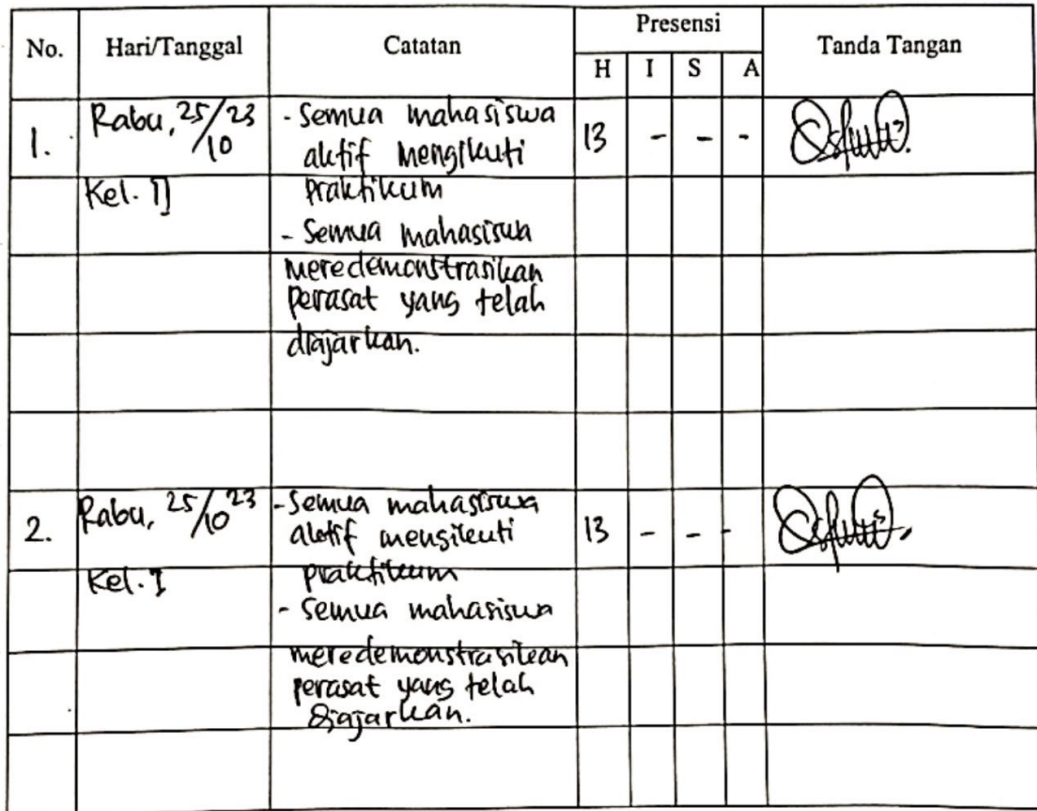 No. Hari/Tanggal Catatan Presensi Tanda Tangan
H I S A
1. Rabu, 25/10 23 - Semua mahasiswa 13 - - -
aktif mengikuti
Kel. II praktikum
- Semua mahasiswa
meredemonstrasikan
perasat yang telah
diajarkan.
2. Rabu, 25/10 23 - Semua mahasiswa 13 - - -
aktif mengikuti
Kel. I praktikum
- Semua mahasiswa
meredemonstrasikan
perasat yang telah
diajarkan.